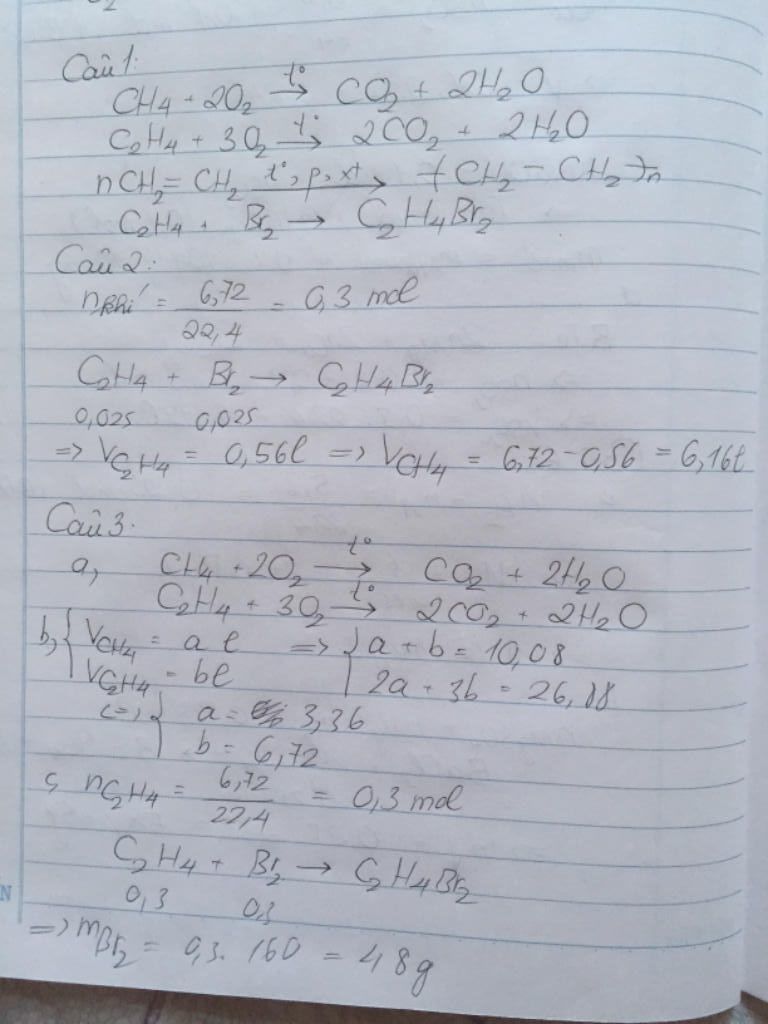 Câu 1:
CH4 + 2O2 t°→ CO2 + 2H2O
C2H4 + 3O2 t°→ 2CO2 + 2H2O
nCH2 = CH2 t°, p, xt→ (CH2 - CH2)n
C2H4 + Br2 → C2H4Br2
Câu 2:
n khí = 6,72/22,4 = 0,3 mol
C2H4 + Br2 → C2H4Br2
0,025 0,025
=> VC2H4 = 0,56l => VCH4 = 6,72 - 0,56 = 6,16l
Câu 3:
a, CH4 + 2O2 t°→ CO2 + 2H2O
C2H4 + 3O2 t°→ 2CO2 + 2H2O
b, { VCH4 = a l => { a + b = 10,08
VC2H4 = bl 2a + 3b = 26,88
<=> { a = 3,36
b = 6,72
c, nC2H4 = 6,72/22,4 = 0,3 mol
C2H4 + Br2 → C2H4Br2
0,3 0,3
=> mBr2 = 0,3. 160 = 48g